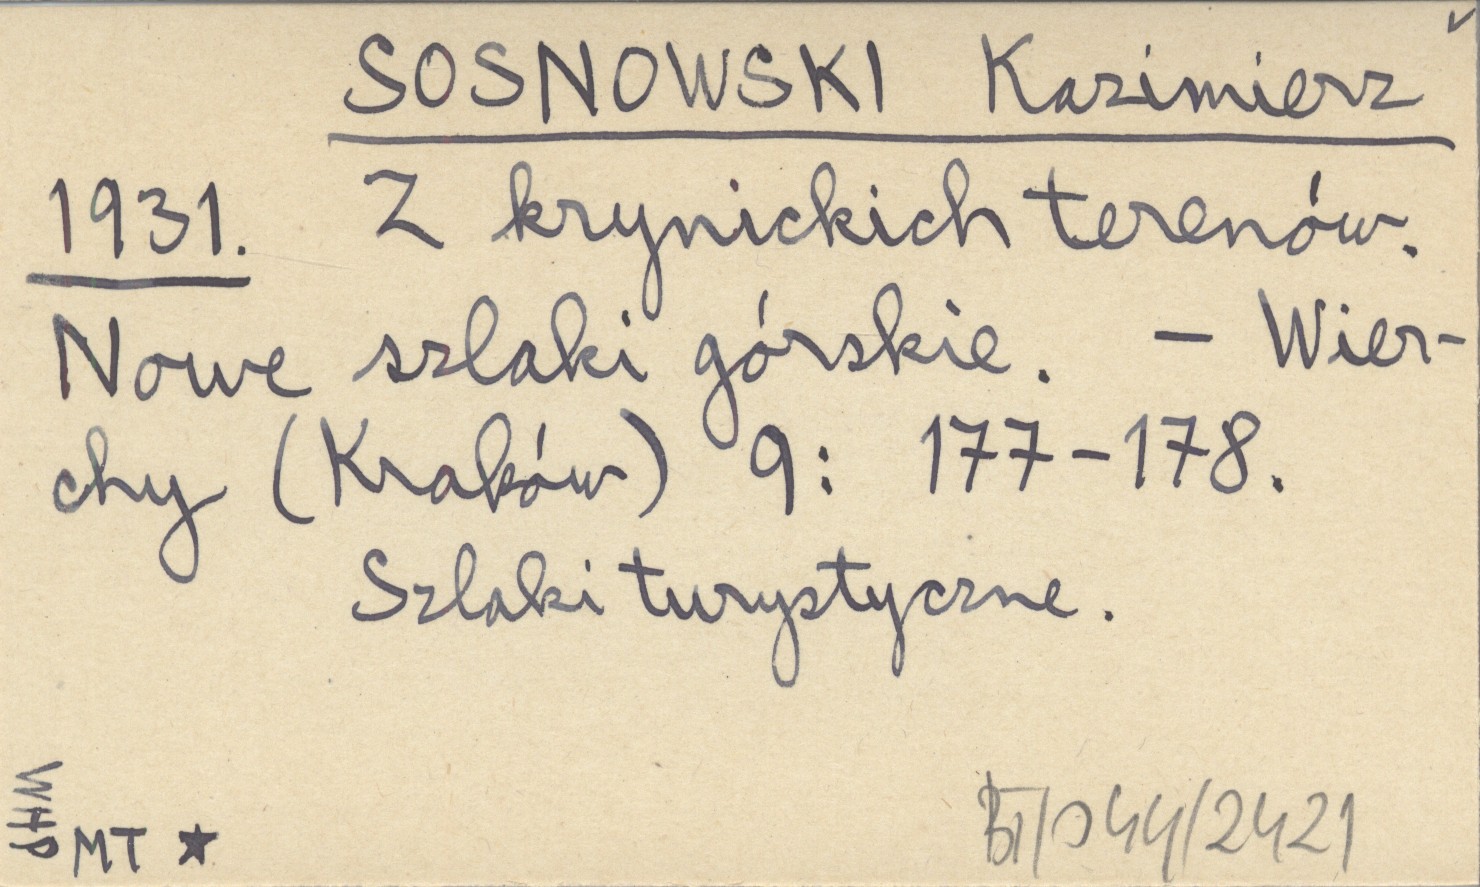 SOSNOWSKI Kazimierz
1931. Z krynickich terenów.
Nowe szlaki górskie. – Wier-
chy (Kraków) 9: 177-178.
Szlaki turystyczne.
WHP
MT ★
BT/044/2421